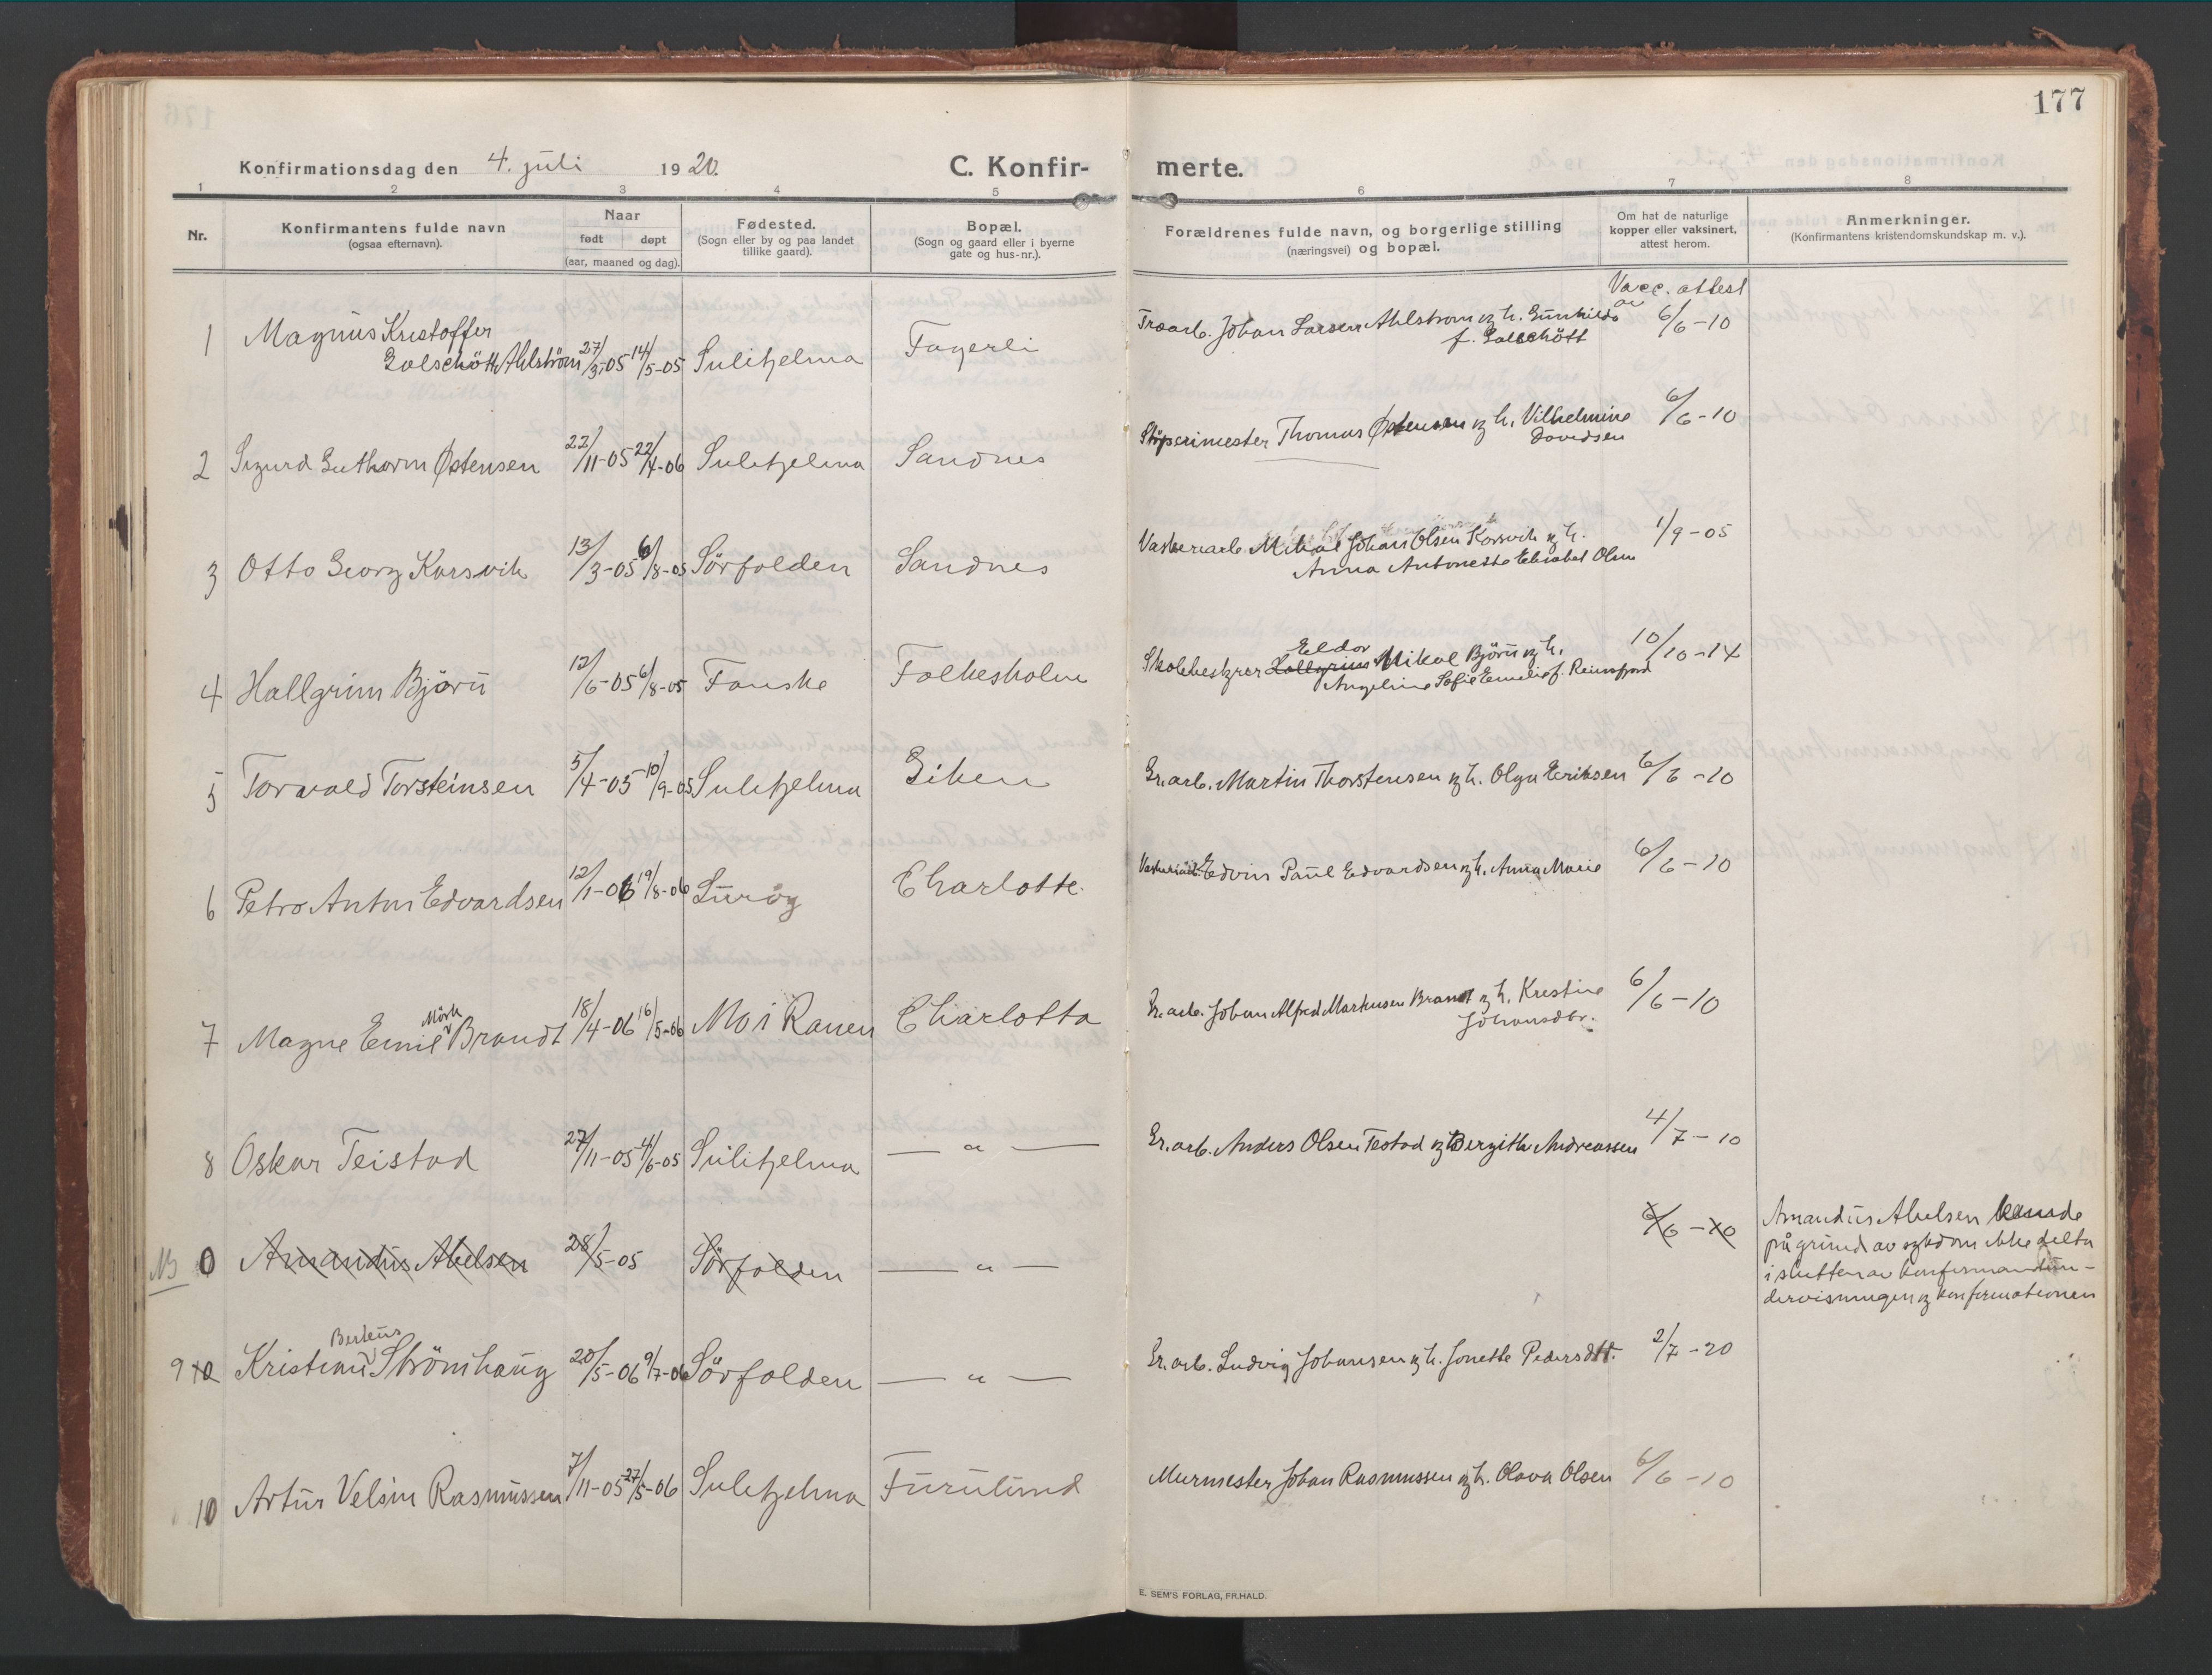 177
Konfirmationsdag den 4. juli 1920. C. Konfirmerte.
1 2 3 4 5 6 7 8
Nr.
Konfirmantens fulde navn
(ogsaa efternavn).
Naar
født døpt
(aar, maaned og dag).
Fødested.
(Sogn eller by og paa landet
tillike gaard).
Bopæl.
(Sogn og gaard eller i byerne
gate og hus-nr.).
Forældrenes fulde navn, og borgerlige stilling
(næringsvei) og bopæl.
Om hat de naturlige
kopper eller vaksinert,
attest herom.
Anmerkninger.
(Konfirmantens kristendomskundskap m. v.).
Vacc. attest
av
1 Magnus Kristoffer
Golschött Ahlström 27/3-05 14/5-05 Sulitjelma Fagerli
Johan Larsen Ahlstrom og h. Gunhilda 6/6-10
f. Golschött
2 Sigurd Guthorm Østensen 22/11-05 22/4-06 Sulitjelma Sandnes
Støperimester Thomas Østensen og h. Vilhelmine 6/6-10
Davidsen
3 Otto Georg Korsvik 13/3-05 6/8-05 Sörfolden Sandnes
Vaskeriarb Mikal Johan Olsen Korsvik og h. 1/9-05
Anna Antonette Elisabet Olsen
4 Hallgrim Björü 12/6-05 6/8-05 Fauske Folkesholm
Eldor
Hallgrim Mikal Björü og h. 10/10-14
Angeline Sofie Emelie f. Reinsfjord
5 Torvald Torsteinsen 5/4-05 10/9-05 Sulitjelma Giken
Gr.arb. Martin Thorstensen og h. Olga Eriksen 6/6-10
6 Petro Anton Edvardsen 12/1-06 19/8-06 Luröy Charlotte.
Vaskeriarb. Edvin Paul Edvardsen og h. Anna Marie 6/6-10
Mörk
7 Magne Emil Brandt 18/4-06 16/5-06 Mo i Ranen Charlotta
Gr.arb. Johan Alfred Markusen Brandt og h. Kristine 6/6-10
Johansdtr.
8 Oskar Teistad 27/11-05 4/6-05 Sulitjelma — " —
Gr.arb. Anders Olsen Testad og h. Bergitha Andreassen 4/7-10
NB 0 Amandus Abelsen 28/5-05 Sörfolden — " — 6/6-10
Amandus Abelsen kunde
på grund av sykdom ikke delta
i slutten av konfirmantun-
dervisningen og konfirmationen
Berteus
9 10 Kristian Strömhaug 20/5-06 9/7-06 Sörfolden — " —
Gr.arb. Ludvig Johansen og h. Jonette Pedersdtr. 2/7-20
10 Artur Velsin Rasmussen 7/11-05 27/5-06 Sulitjelma Furulund
Murmester Johan Rasmussen og h. Olava Olsen 6/6-10
E. SEM'S FORLAG, FR.HALD.